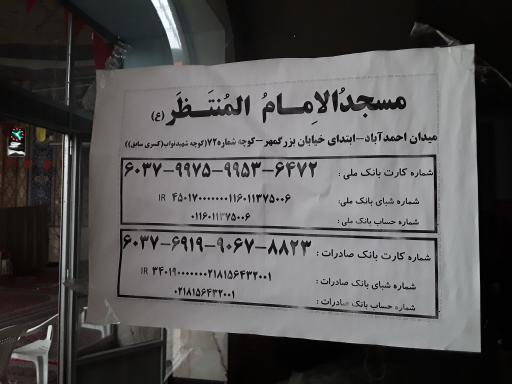 مسجدُالاِمامُ المُنتَظَر (ع)
میدان احمدآباد-ابتدای خیابان بزرگمهر-کوچه شماره۷۲(کوچه شهیدنواب(کسری سابق))
شماره کارت بانک ملی : ۶۰۳۷-۹۹۷۵-۹۹۵۳-۶۴۷۲
شماره شبای بانک ملی: IR ۴۵۰۱۷۰۰۰۰۰۰۰۱۱۶۰۱۱۳۷۵۰۰۶
شماره حساب بانک ملی : ۰۱۱۶۰۱۱۳۷۵۰۰۶
شماره کارت بانک صادرات : ۶۰۳۷-۶۹۱۹-۹۰۶۷-۸۸۲۳
شماره شبای بانک صادرات : IR ۳۴۰۱۹۰۰۰۰۰۰۰۰۲۱۸۱۵۶۴۳۲۰۰۱
شماره حساب بانک صادرات : ۰۲۱۸۱۵۶۴۳۲۰۰۱